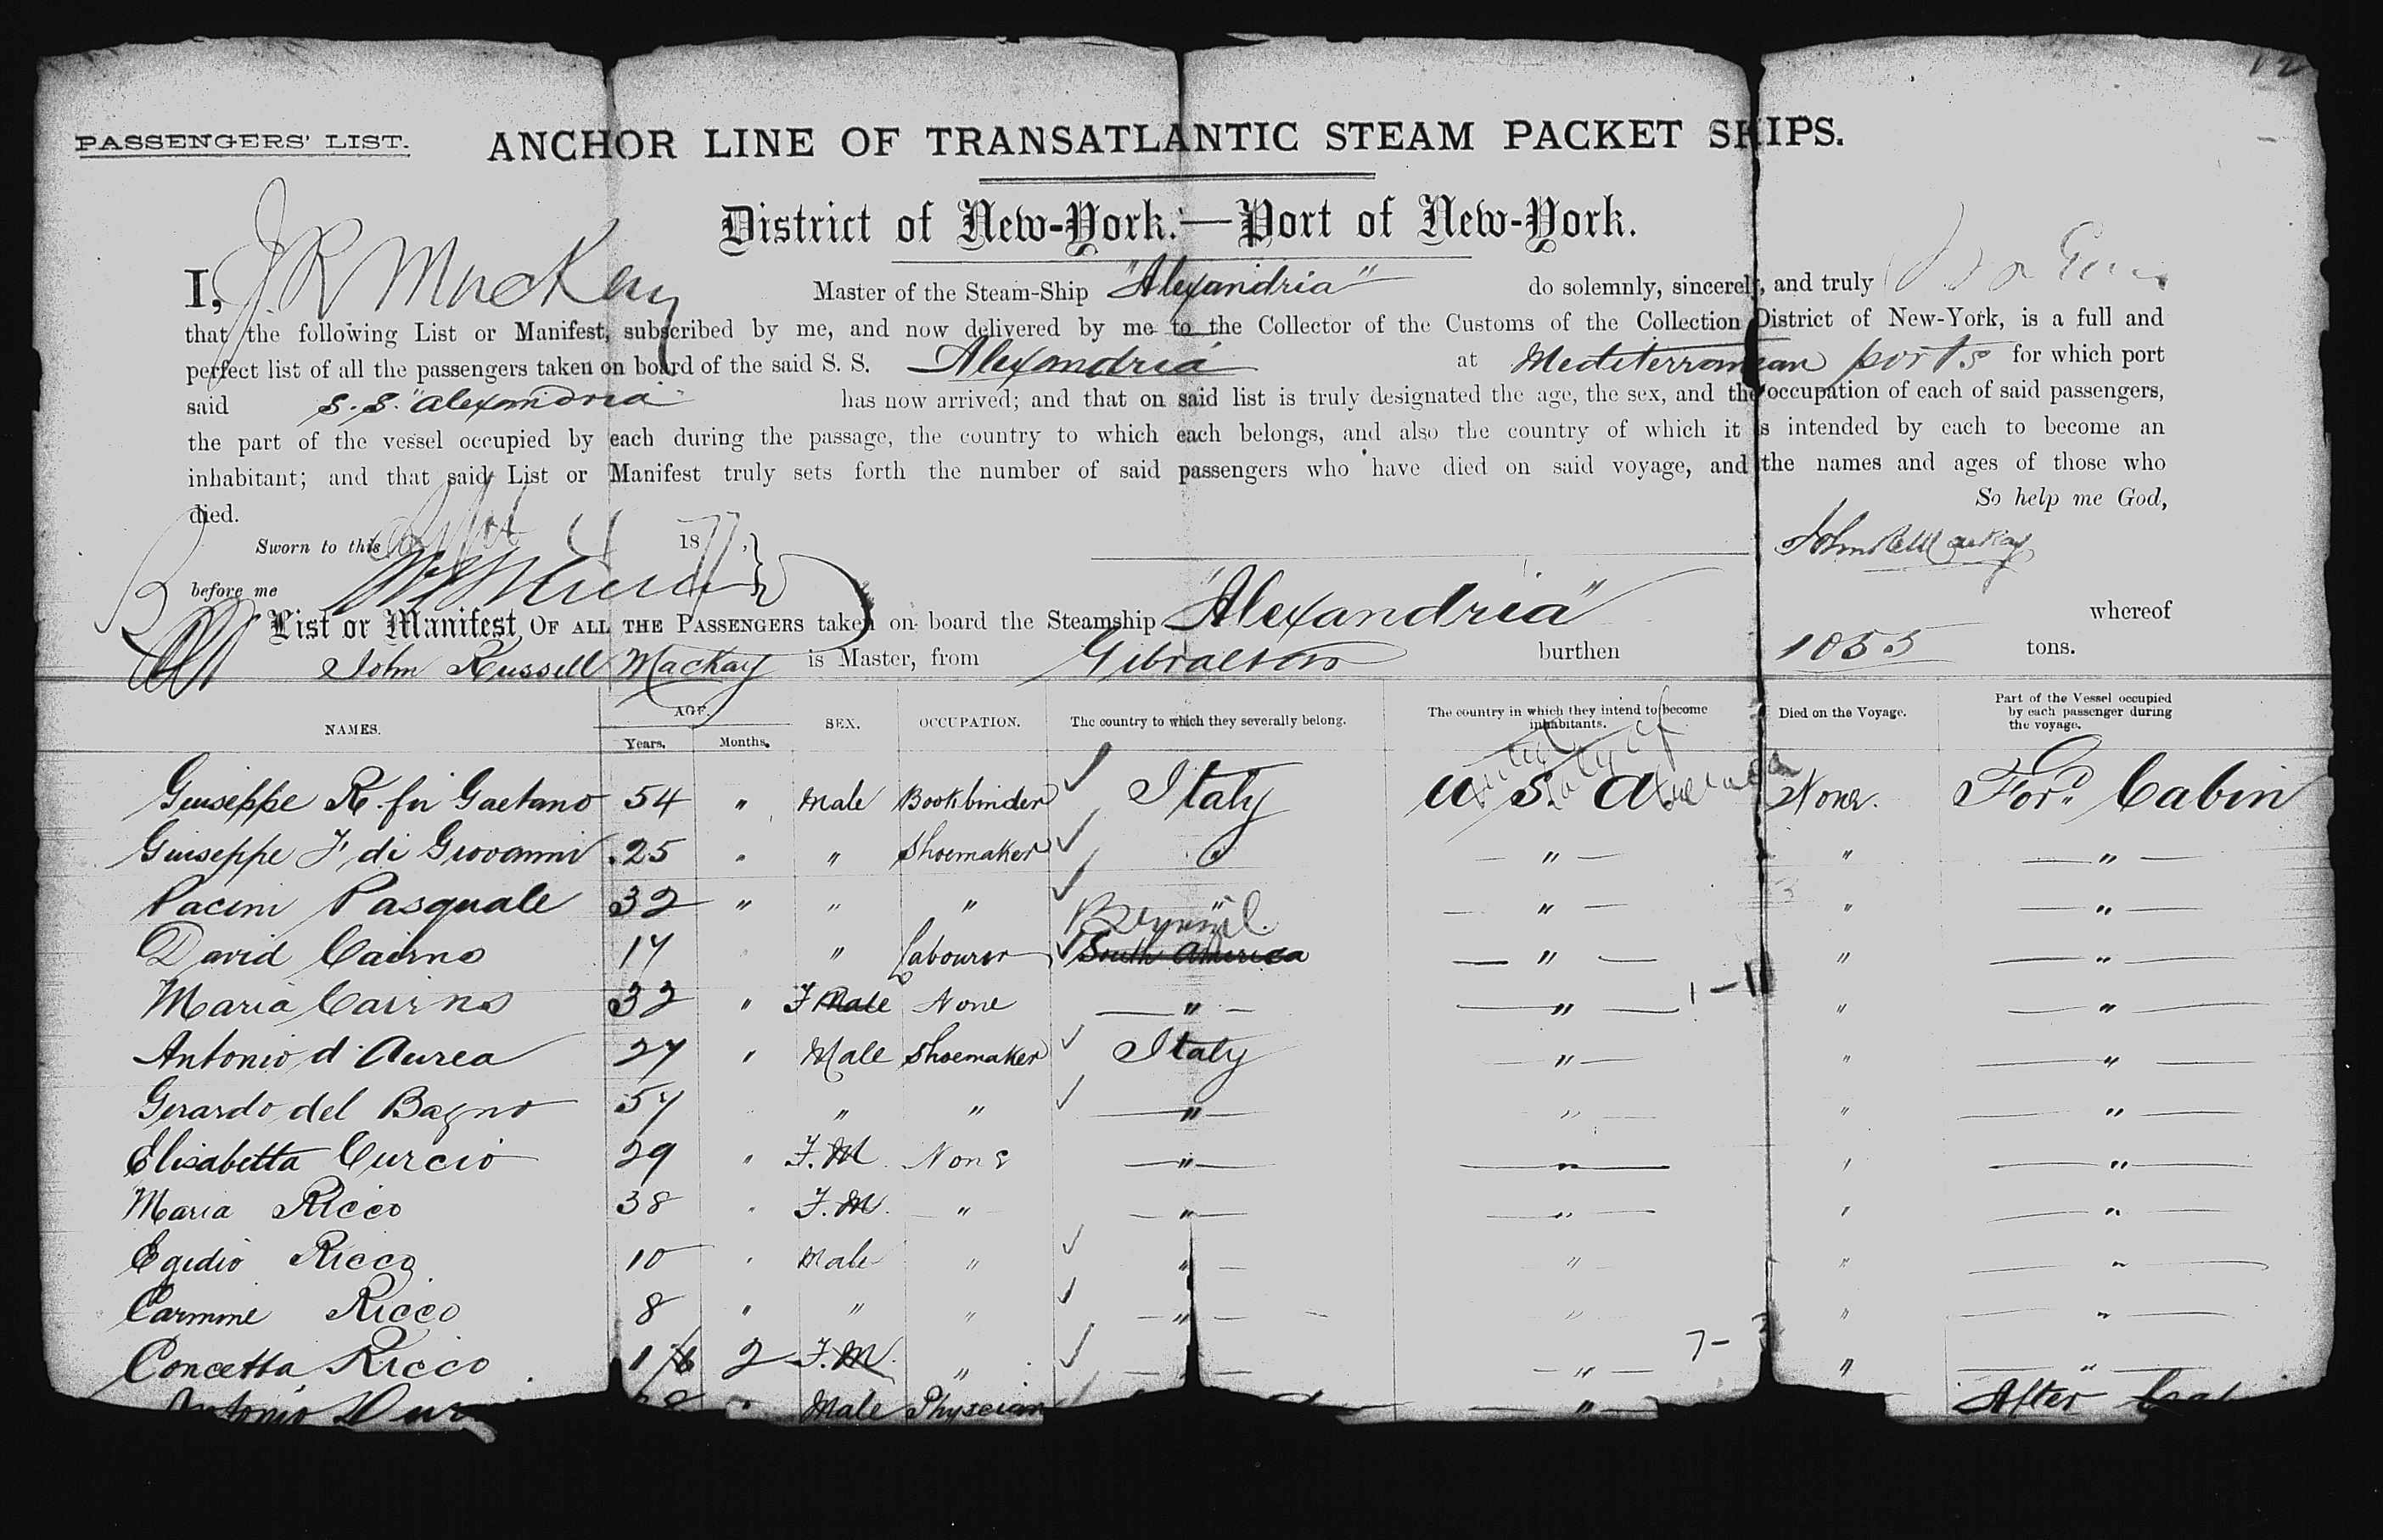 12
PASSENGERS' LIST.
ANCHOR LINE OF TRANSATLANTIC STEAM PACKET SHIPS.
District of New-York.—Port of New-York.
I, J R MacKay Master of the Steam-Ship "Alexandria" do solemnly, sincerely, and truly
that the following List or Manifest, subscribed by me, and now delivered by me to the Collector of the Customs of the Collection District of New-York, is a full and
perfect list of all the passengers taken on board of the said S. S. Alexandria at Mediterranean ports for which port
said S.S. "Alexandria has now arrived; and that on said list is truly designated the age, the sex, and the occupation of each of said passengers,
the part of the vessel occupied by each during the passage, the country to which each belongs, and also the country of which it is intended by each to become an
inhabitant; and that said List or Manifest truly sets forth the number of said passengers who have died on said voyage, and the names and ages of those who
died. So help me God,
Sworn to this 4 1877, John R MacKay
before me
List or Manifest OF ALL THE PASSENGERS taken on board the Steamship "Alexandria" whereof
John Russell Mackay is Master, from Gibraltar burthen 1055 tons.
NAMES. AGE. Years. Months. SEX. OCCUPATION. The country to which they severally belong. The country in which they intend to become inhabitants. Died on the Voyage. Part of the Vessel occupied by each passenger during the voyage.
Giuseppe R. fu Gaetano 54 " Male Bookbinder Italy U S. A None. For.d Cabin
Giuseppe F di Giovanni 25 " " Shoemaker " " "
Pacini Pasquale 32 " " " " " " "
David Cairns 17 " Labourer South America " " "
Maria Cairns 32 " F Male None " " 1 - 11 " "
Antonio d'Aurea 27 " Male Shoemaker Italy " " "
Gerardo del Bagno 57 " " " " " "
Elisabetta Curcio 29 " F.M. None " " " "
Maria Ricco 38 " F.M. " " " " "
Egidio Ricco 10 " Male " " " " "
Carmine Ricco 8 " " " " " " "
Concetta Ricco 1 2 F.M. " " 7 - " "
Antonio Male Physcian " After